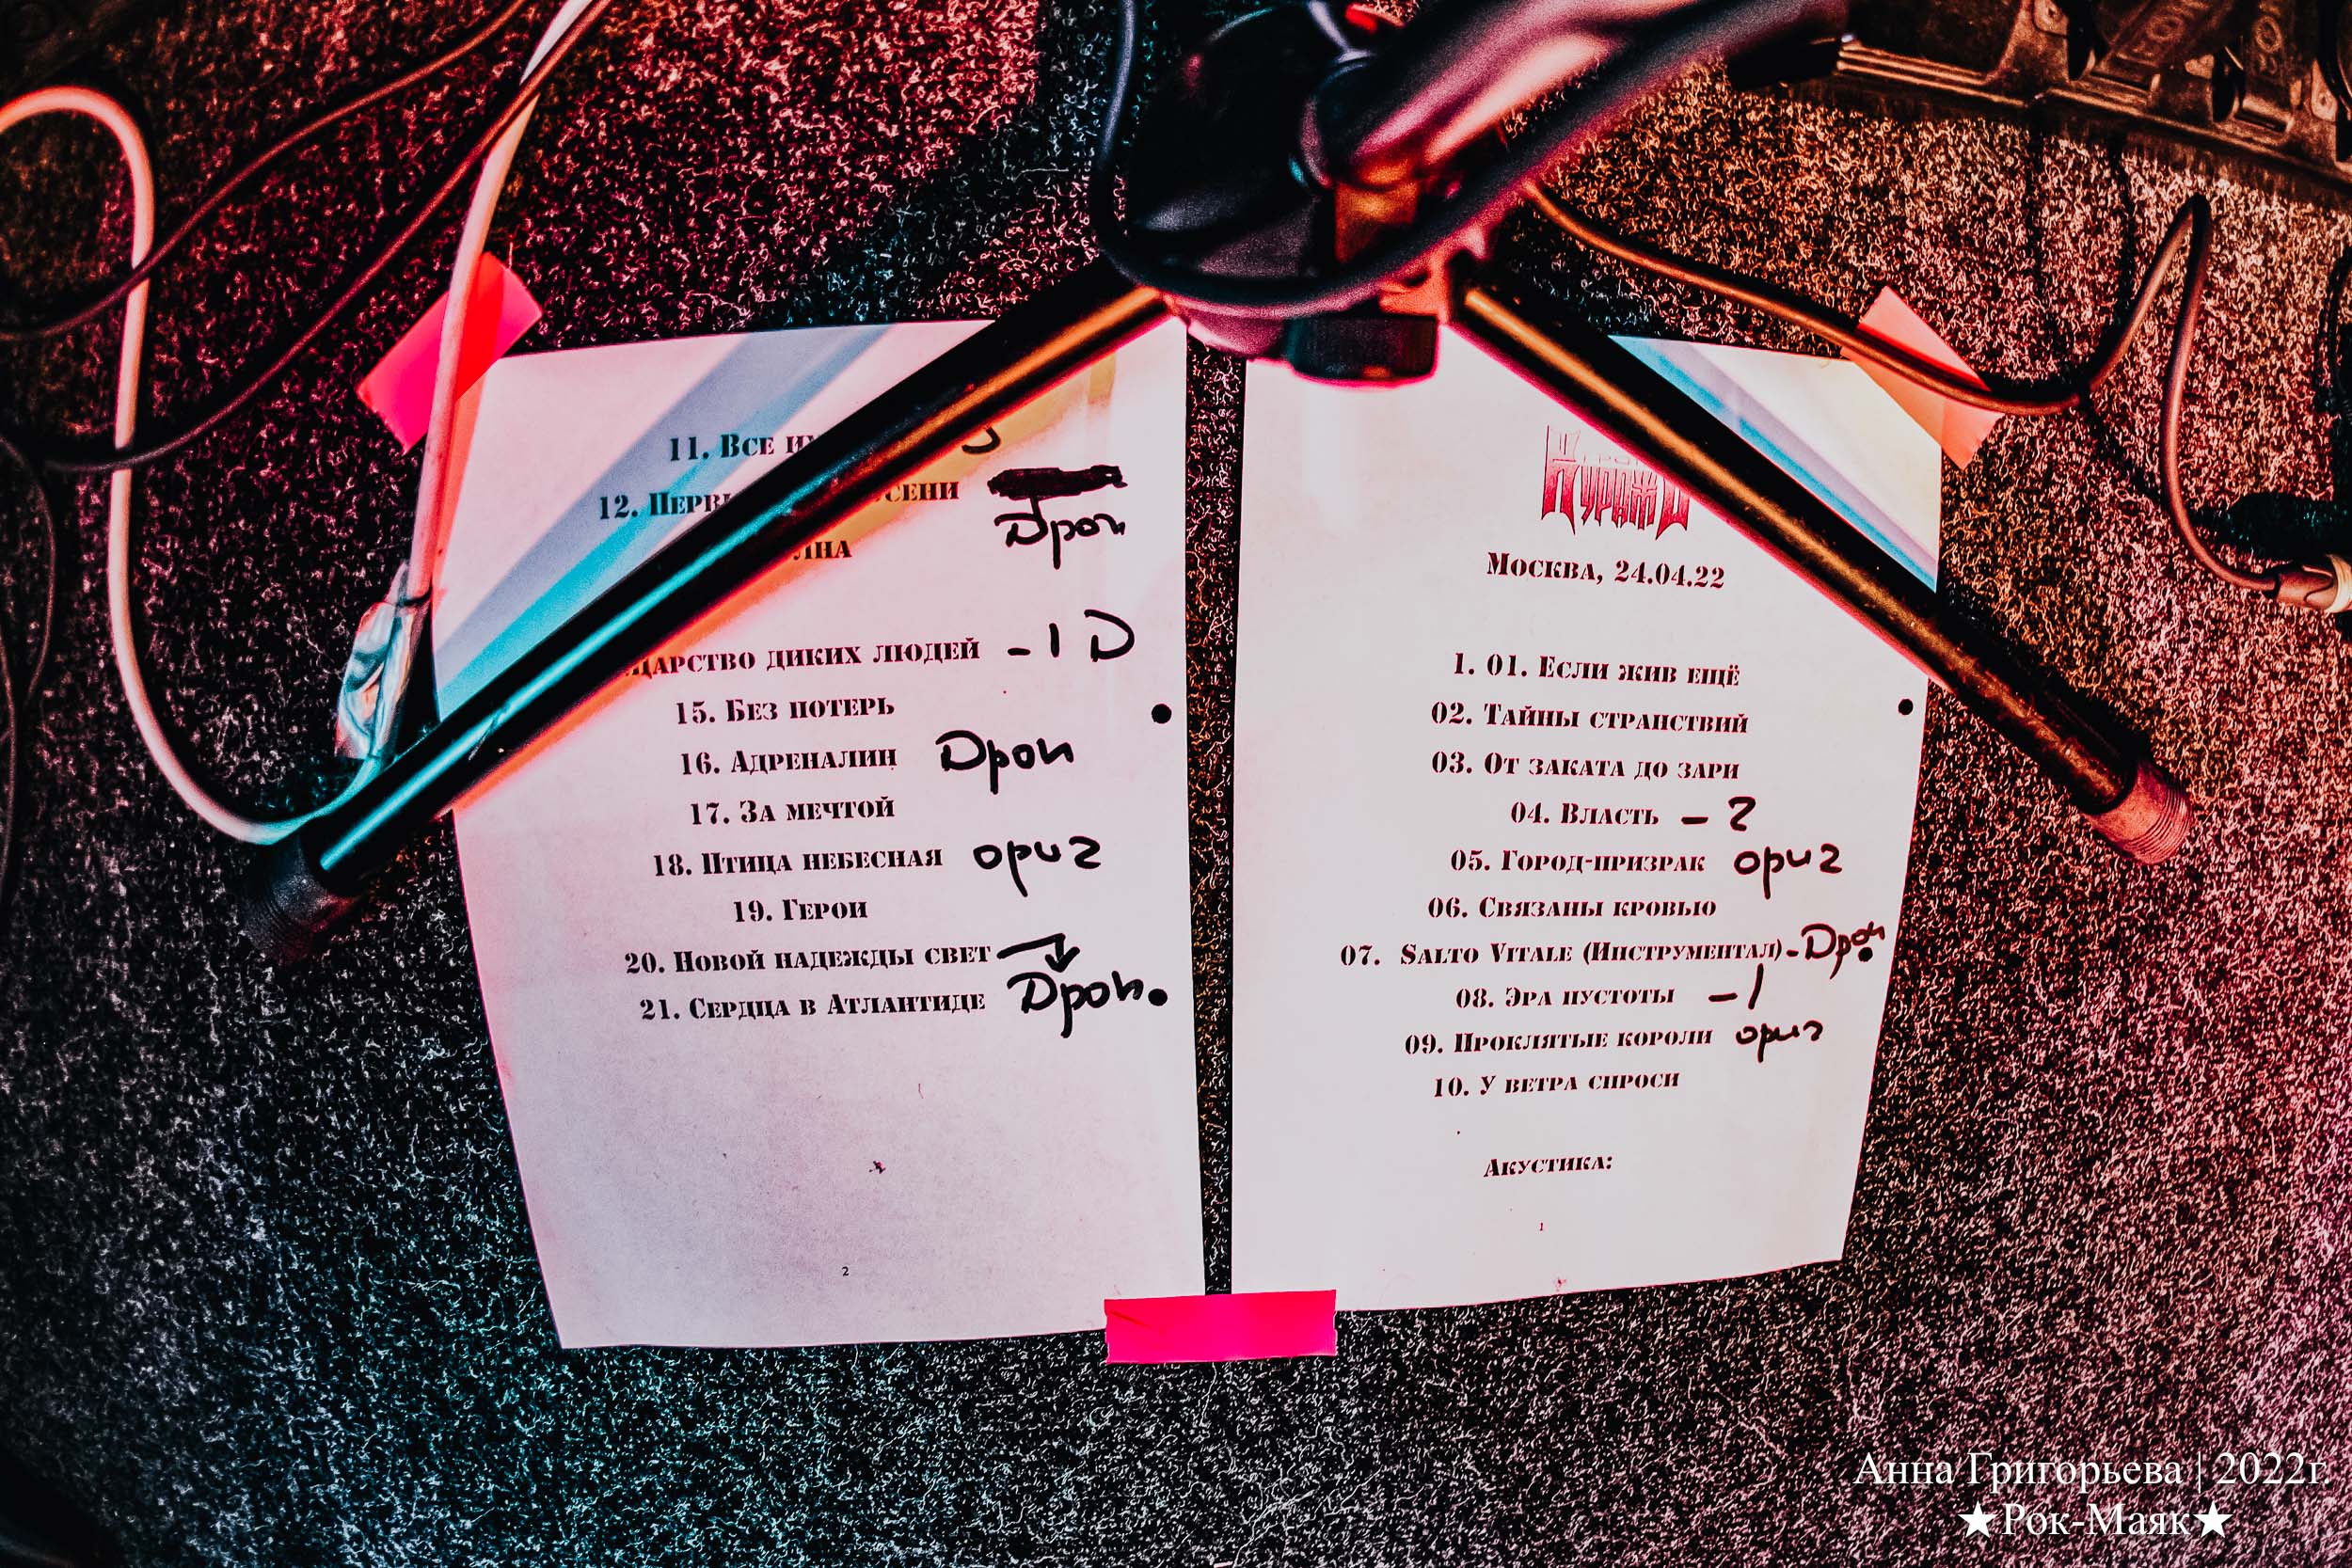 Кураж
Москва, 24.04.22
1. 01. Если жив ещё
02. Тайны странствий
03. От заката до зари
04. Власть – 2
05. Город-призрак ориг
06. Связаны кровью
07. Salto Vitale (Инструментал) - Дроп
08. Эра пустоты – 1
09. Проклятые короли ориг
10. У ветра спроси
Акустика:
1
11. Все
12.
Дроп
диких людей – 1 D
15. Без потерь
16. Адреналин Дроп
17. За мечтой
18. Птица небесная ориг
19. Герои
20. Новой надежды свет
21. Сердца в Атлантиде Дроп.
2
Анна Григорьева | 2022г.
★Рок-Маяк★